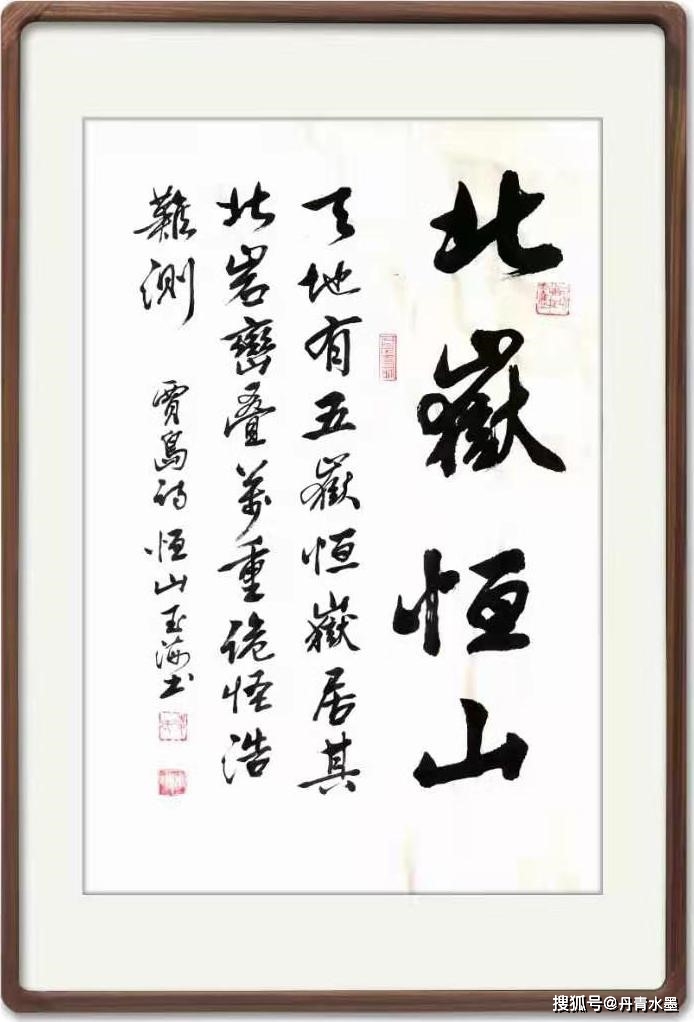 北嶽恒山
天地有五嶽恒嶽居其
北岩巒叠萬重詭怪浩
難測 賈島詩 恒山玉海书
搜狐号@丹青水墨